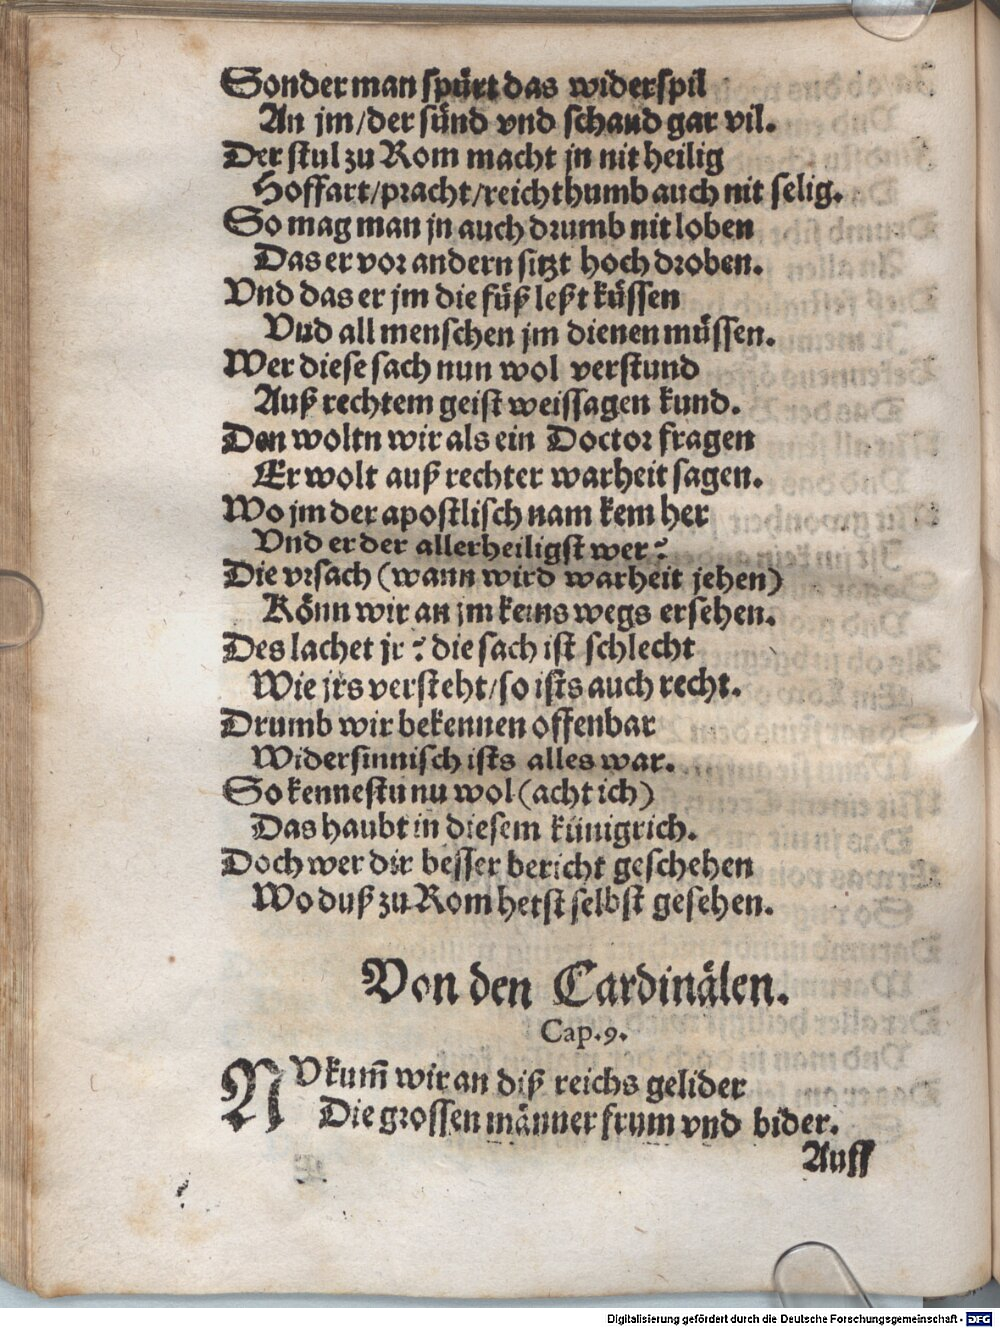 Sonder man spürt das widerspil
An jm/der sünd vnd schand gar vil.
Der stul zu Rom macht jn nit heilig
Hoffart/pracht/reichthumb auch nit selig.
So mag man jn auch drumb nit loben
Das er vor andern sitzt hoch droben.
Vnd das er jm die füß leßt küssen
Vnd all menschen jm dienen müssen.
Wer diese sach nun wol verstund
Auß rechtem geist weissagen kund.
Den woltn wir als ein Doctor fragen
Er wolt auß rechter warheit sagen.
Wo jm der apostlisch nam kem her
Vnd er der allerheiligst wer?
Die vrsach (wann wird warheit jehen)
Könn wir an jm keins wegs ersehen.
Des lachet jr? die sach ist schlecht
Wie jrs versteht/so ists auch recht.
Drumb wir bekennen offenbar
Widersinnisch ists alles war.
So kennestu nu wol (acht ich)
Das haubt in diesem künigrich.
Doch wer dir besser bericht geschehen
Wo duß zu Rom hetst selbst gesehen.
Von den Cardinälen.
Cap.9.
NVkum̄ wir an diß reichs gelider
Die grossen männer frum vnd bider.
Auff
Digitalisierung gefördert durch die Deutsche Forschungsgemeinschaft - DFG